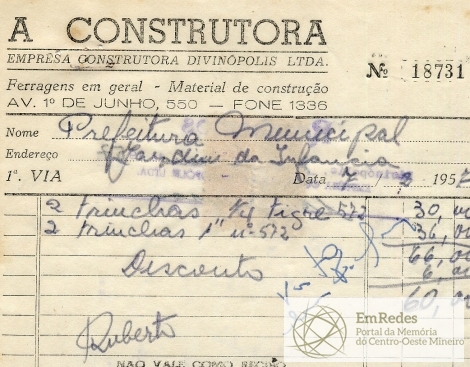 A CONSTRUTORA
EMPRÊSA CONSTRUTORA DIVINÓPOLIS LTDA.
Nº 18731
Ferragens em geral - Material de construção
AV. 1º DE JUNHO, 550 — FONE 1336
Nome Prefeitura Municipal
Endereço Jardim da Infancia
1ª. VIA Data 7 2 195
2 trinchas tigre 572 30,00
2 trinchas 1" nº 572 36,00
66,00
Disconto 6,00
60,00
Ruberto
NÃO VALE COMO RECIBO
EmRedes
Portal da Memória
do Centro-Oeste Mineiro